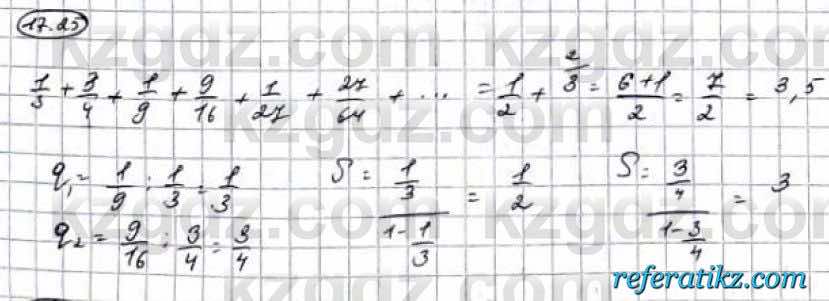 17.25
1/3 + 3/4 + 1/9 + 9/16 + 1/27 + 27/64 + ... = 1/2 + 2/3 = 6+1/2 = 7/2 = 3,5
q₁ = 1/9 : 1/3 = 1/3 S = 1/3 / 1-1/3 = 1/2 S = 3/4 / 1-3/4 = 3
q₂ = 9/16 : 3/4 = 3/4
kzgdz.com
referatikz.com